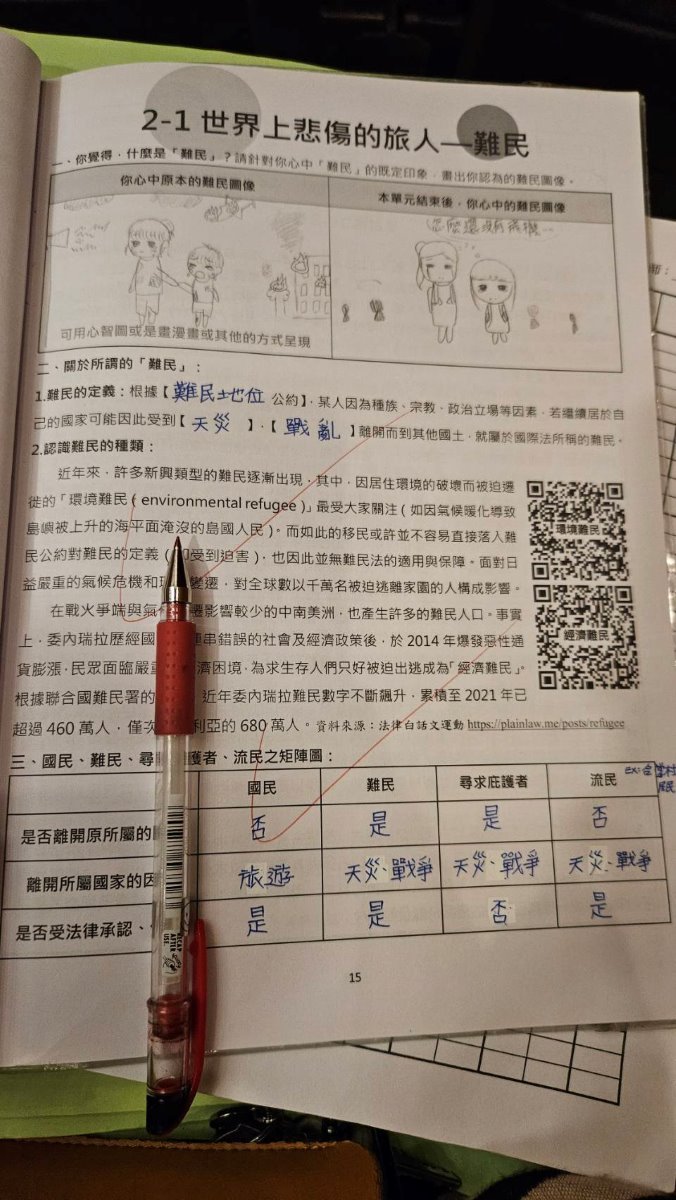 2-1 世界上悲傷的旅人—難民
一、你覺得，什麼是「難民」？請針對你心中「難民」的既定印象，畫出你認為的難民圖像。
你心中原本的難民圖像
本單元結束後，你心中的難民圖像
怎麼還沒有飛機...
可用心智圖或是畫漫畫或其他的方式呈現
二、關於所謂的「難民」：
1.難民的定義：根據【難民地位 公約】，某人因為種族、宗教、政治立場等因素，若繼續居於自
己的國家可能因此受到【 天災 】、【 戰亂 】離開而到其他國土，就屬於國際法所稱的難民。
2.認識難民的種類：
近年來，許多新興類型的難民逐漸出現，其中，因居住環境的破壞而被迫遷
徙的「環境難民（environmental refugee）」最受大家關注（如因氣候暖化導致
島嶼被上升的海平面淹沒的島國人民）。而如此的移民或許並不容易直接落入難
民公約對難民的定義（即受到迫害），也因此並無難民法的適用與保障。面對日
益嚴重的氣候危機和 變遷，對全球數以千萬名被迫逃離家園的人構成影響。
在戰火爭端與氣 遷影響較少的中南美洲，也產生許多的難民人口。事實
上，委內瑞拉歷經國 連串錯誤的社會及經濟政策後，於 2014 年爆發惡性通
貨膨漲，民眾面臨嚴 濟困境，為求生存人們只好被迫出逃成為「經濟難民」。
根據聯合國難民署的 近年委內瑞拉難民數字不斷飆升，累積至 2021 年已
超過 460 萬人，僅次 利亞的 680 萬人。資料來源：法律白話文運動 https://plainlaw.me/posts/refugee
環境難民
經濟難民
三、國民、難民、尋 護者、流民之矩陣圖：
國民 難民 尋求庇護者 流民
是否離開原所屬的 否 是 是 否
離開所屬國家的因 旅遊 天災、戰爭 天災、戰爭 天災、戰爭
是否受法律承認、 是 是 否 是
15